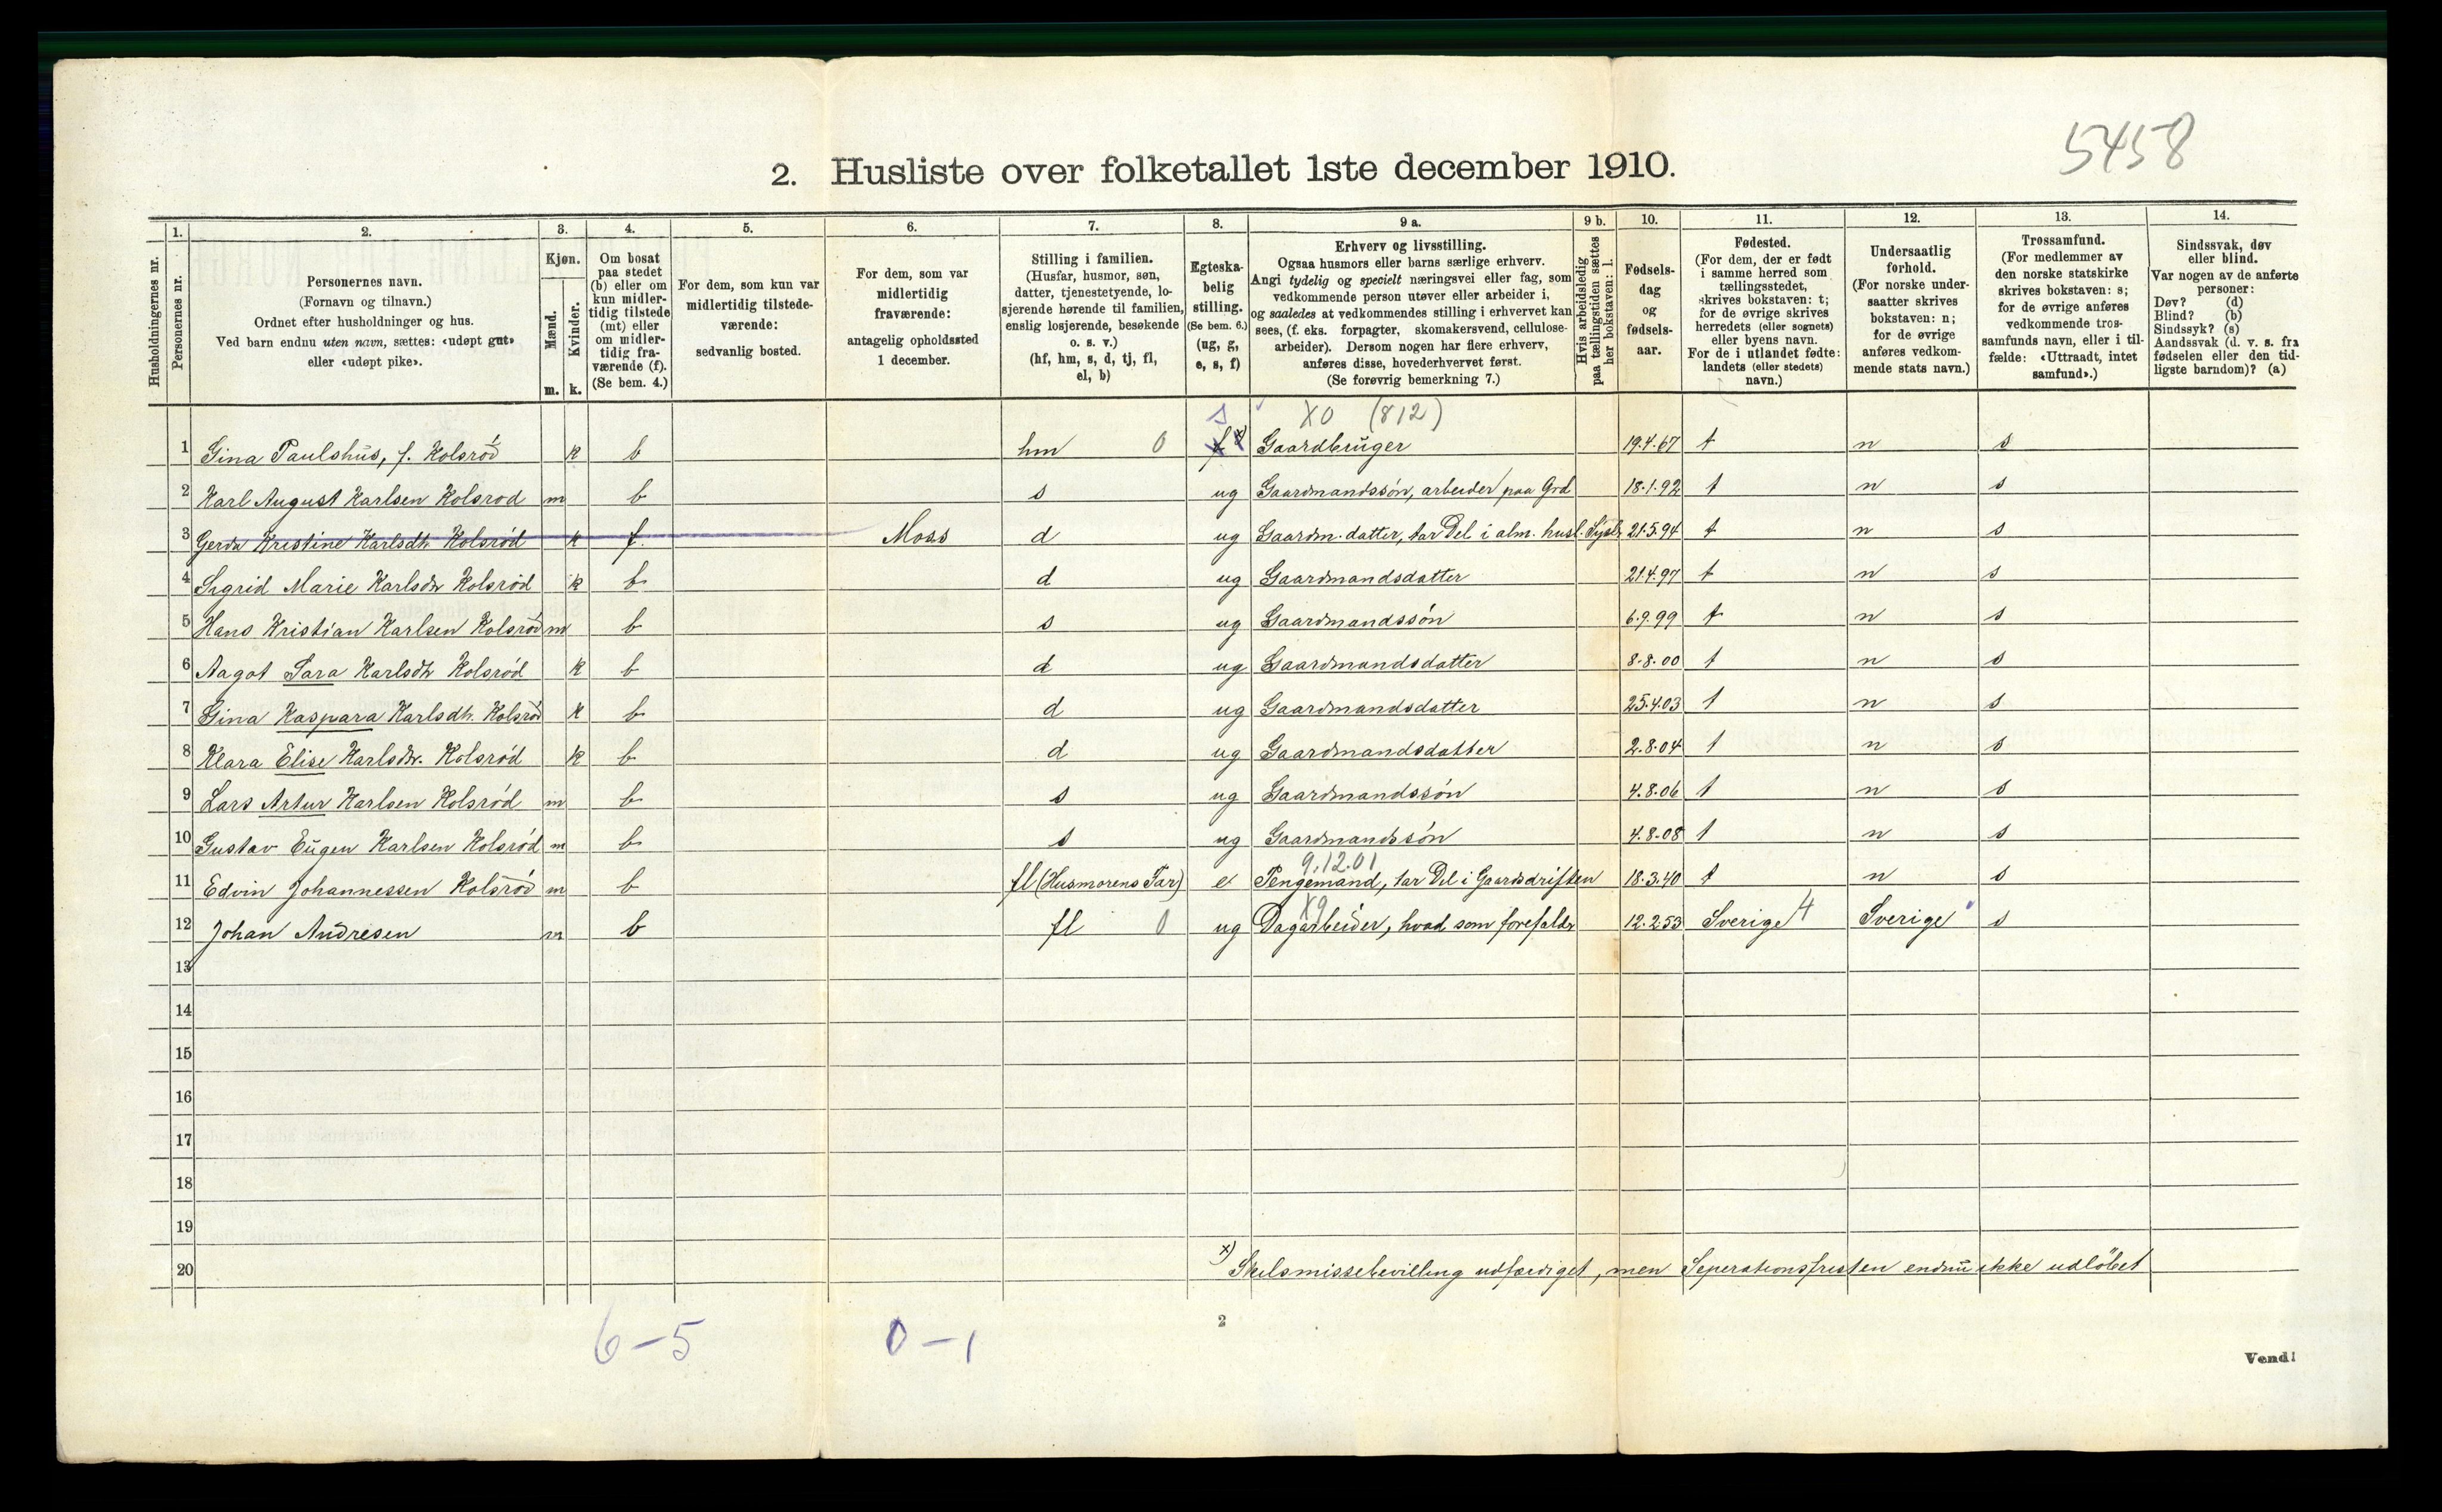 5458
2. Husliste over folketallet 1ste december 1910.
Husholdningernes nr.
1.
Personernes nr.
2.
Personernes navn.
(Fornavn og tilnavn.)
Ordnet efter husholdninger og hus.
Ved barn endnu uten navn, sættes: «udøpt gut»
eller «udøpt pike».
3.
Kjøn.
Mænd.
Kvinder.
m. k.
4.
Om bosat
paa stedet
(b) eller om
kun midler-
tidig tilstede
(mt) eller
om midler-
tidig fra-
værende (f).
(Se bem. 4.)
5.
For dem, som kun var
midlertidig tilstede-
værende:
sedvanlig bosted.
6.
For dem, som var
midlertidig
fraværende:
antagelig opholdssted
1 december.
7.
Stilling i familien.
(Husfar, husmor, søn,
datter, tjenestetyende, lo-
sjerende hørende til familien,
enslig losjerende, besøkende
o. s. v.)
(hf, hm, s, d, tj, fl,
el, b)
8.
Egteska-
belig
stilling.
(Se bem. 6.)
(ug, g,
e, s, f)
9 a.
Erhverv og livsstilling.
Ogsaa husmors eller barns særlige erhverv.
Angi tydelig og specielt næringsvei eller fag, som
vedkommende person utøver eller arbeider i,
og saaledes at vedkommendes stilling i erhvervet kan
sees, (f. eks. forpagter, skomakersvend, cellulose-
arbeider). Dersom nogen har flere erhverv,
anføres disse, hovederhvervet først.
(Se forøvrig bemerkning 7.)
9 b.
Hvis arbeidsledig
paa tællingstiden sættes
her bokstaven: l.
10.
Fødsels-
dag
og
fødsels-
aar.
11.
Fødested.
(For dem, der er født
i samme herred som
tællingsstedet,
skrives bokstaven: t;
for de øvrige skrives
herredets (eller sognets)
eller byens navn.
For de i utlandet fødte:
landets (eller stedets)
navn.)
12.
Undersaatlig
forhold.
(For norske under-
saatter skrives
bokstaven: n;
for de øvrige
anføres vedkom-
mende stats navn.)
13.
Trossamfund.
(For medlemmer av
den norske statskirke
skrives bokstaven: s;
for de øvrige anføres
vedkommende tros-
samfunds navn, eller i til-
fælde: «Uttraadt, intet
samfund».)
14.
Sindssvak, døv
eller blind.
Var nogen av de anførte
personer:
Døv? (d)
Blind? (b)
Sindssyk? (s)
Aandssvak (d. v. s. fra
fødselen eller den tid-
ligste barndom)? (a)
s X0 (812)
1 Gina Paulshus, f. Kolsrød k b hm 0 f x) Gaardbruger 19.4.67 t n s
2 Karl August Karlsen Kolsrod m b s ug Gaardmandssøn, arbeider paa Grd 18.1.92 t n s
3 Gerda Kristine Karlsdtr. Kolsrød k f. Moss d ug Gaardm. datter, tar Del i alm. husl. Sysler 21.5.94 t n s
4 Sigrid Marie Karlsdtr Kolsrød k b d ug Gaardmandsdatter 21.4.97 t n s
5 Hans Kristian Karlsen Kolsrød m b s ug Gaardmandssøn 6.9.99 t n s
6 Aagot Sara Karlsdtr Kolsrød k b d ug Gaardmandsdatter 8.8.00 t n s
7 Gina Kaspara Karlsdtr. Kolsrød k b d ug Gaardmandsdatter 25.4.03 t n s
8 Klara Elise Karlsdtr. Kolsrød k b d ug Gaardmandsdatter 2.8.04 t n s
9 Lars Artur Karlsen Kolsrød m b s ug Gaardmandssøn 4.8.06 t n s
10 Gustav Eugen Karlsen Kolsrød m b s ug Gaardmandssøn 4.8.08 t n s
9.12.01
11 Edvin Johannessen Kolsrød m b fl (Husmorens Far) e Pengemand, tar Del i Gaardsdriften 18.3.40 t n s
X9
12 Johan Andresen m b fl 0 ug Dagarbeider, hvad som forefalder 12.2.53 Sverige 4 Sverige s
13
14
15
16
17
18
19
20 x) Skilsmissebevilling udfærdiget, men Seperationsfristen endnu ikke udløbet
6-5 0-1
2
Vend!